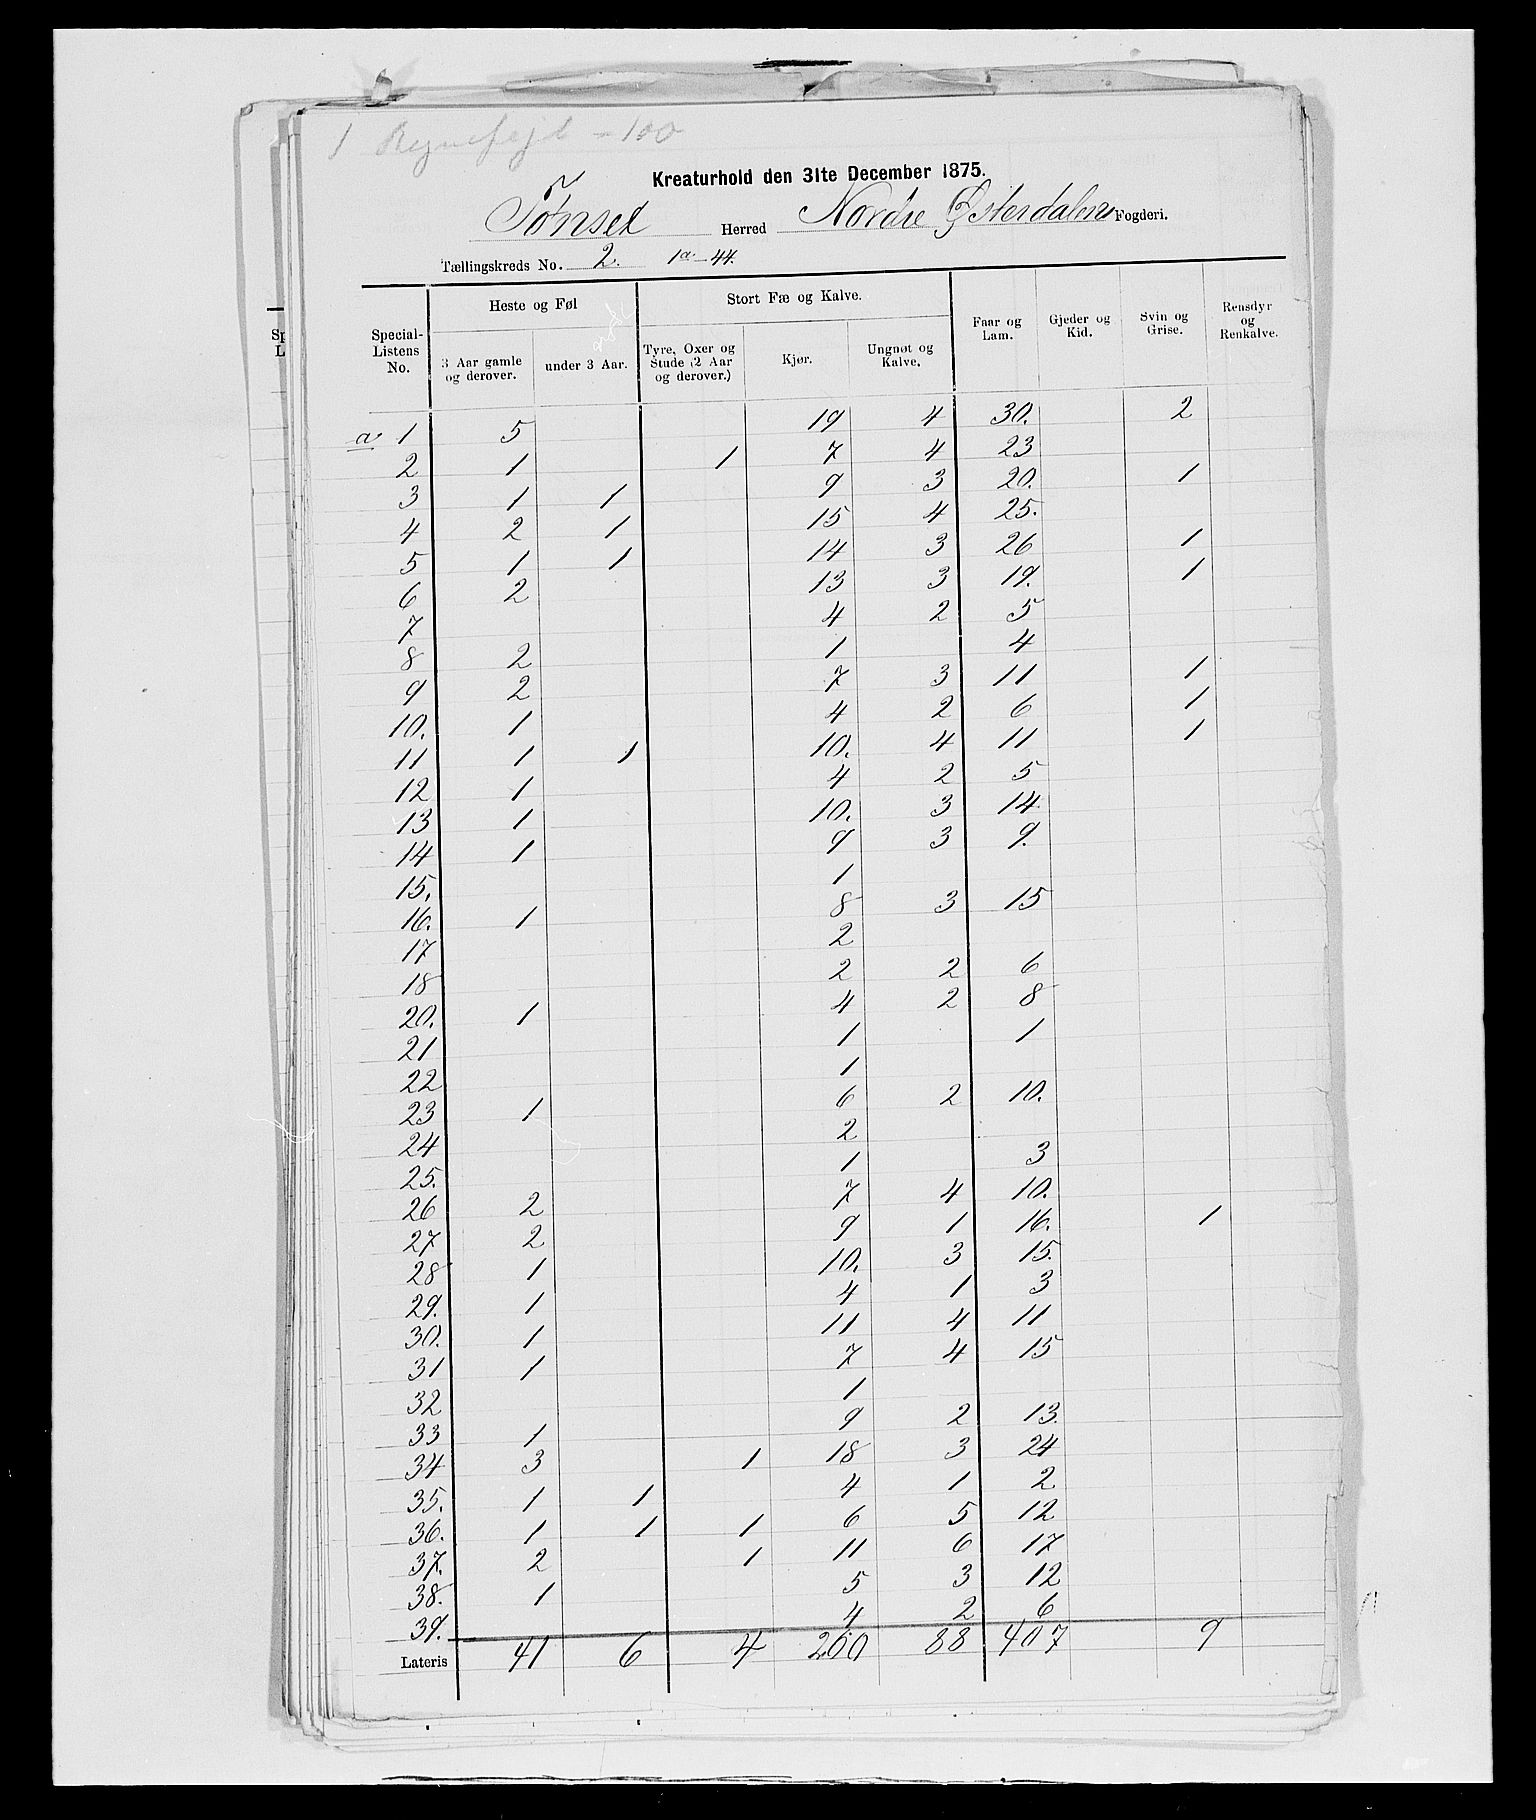 1 Regnefejl - 100
Kreaturhold den 31te December 1875.
Tønset Herred Nordre Østerdalens Fogderi.
Tællingskreds No. 2. 1a - 44.
Special-Listens No. | Heste og Føl | Stort Fæ og Kalve. | Faar og Lam. | Gjeder og Kid. | Svin og Grise. | Rensdyr og Renkalve.
3 Aar gamle og derover. | under 3 Aar. | Tyre, Oxer og Stude (2 Aar og derover.) | Kjør. | Ungnøt og Kalve.
a 1 | 5 | | | 19 | 4 | 30. | | 2 |
2 | 1 | | 1 | 7 | 4 | 23 | | |
3 | 1 | 1 | | 9 | 3 | 20. | | 1 |
4 | 2 | 1 | | 15 | 4 | 25. | | |
5 | 1 | 1 | | 14 | 3 | 26 | | 1 |
6 | 2 | | | 13 | 3 | 19. | | 1 |
7 | | | | 4 | 2 | 5 | | |
8 | 2 | | | 1 | | 4 | | |
9 | 2 | | | 7 | 3 | 11 | | 1 |
10. | 1 | | | 4 | 2 | 6 | | 1 |
11 | 1 | 1 | | 10. | 4 | 11 | | 1 |
12 | 1 | | | 4 | 2 | 5 | | |
13 | 1 | | | 10. | 3 | 14. | | |
14 | 1 | | | 9 | 3 | 9. | | |
15. | | | | 1 | | | | |
16. | 1 | | | 8 | 3 | 15 | | |
17 | | | | 2 | | | | |
18 | | | | 2 | 2 | 6 | | |
20. | 1 | | | 4 | 2 | 8 | | |
21 | | | | 1 | | 1 | | |
22 | | | | 1 | | | | |
23 | 1 | | | 6 | 2 | 10. | | |
24 | | | | 2 | | | | |
25. | | | | 1 | | 3 | | |
26 | 2 | | | 7 | 4 | 10. | | |
27 | 2 | | | 9 | 1 | 16. | | 1 |
28 | 1 | | | 10. | 3 | 15. | | |
29. | 1 | | | 4 | 1 | 3 | | |
30. | 1 | | | 11 | 4 | 11 | | |
31 | 1 | | | 7 | 4 | 15 | | |
32 | | | | 1 | | | | |
33 | 1 | | | 9 | 2 | 13. | | |
34 | 3 | | 1 | 18 | 3 | 24 | | |
35. | 1 | 1 | | 4 | 1 | 2 | | |
36. | 1 | 1 | 1 | 6 | 5 | 12 | | |
37. | 2 | | 1 | 11 | 6 | 17 | | |
38. | 1 | | | 5 | 3 | 12 | | |
39. | | | | 4 | 2 | 6 | | |
Lateris | 41 | 6 | 4 | 260 | 88 | 407 | | 9 |